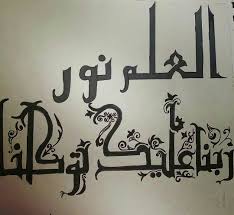 العلم نور
ربنا عليك توكلنا